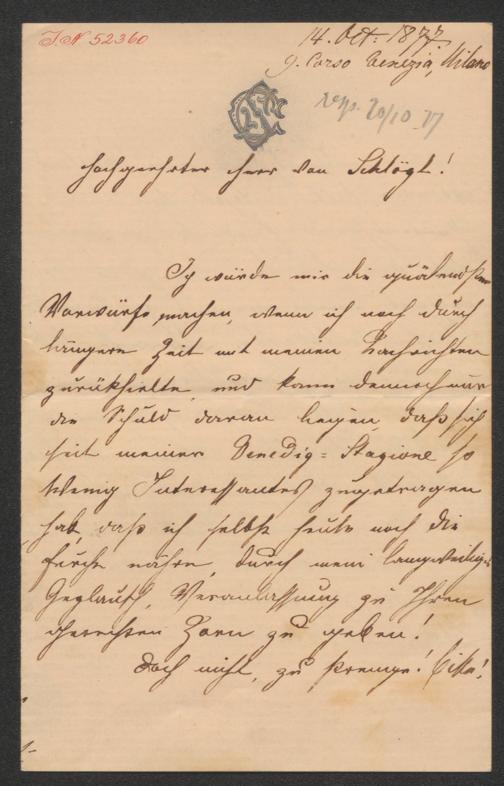 I.N 52360
14. Oct: 1877
9. Corso Venezia, Milano
resp. 20/10 77
Hochgeehrter Herr von Schlögl!
Ich würde mir die quälendsten
Vorwürfe machen, wenn ich noch durch
längere Zeit mit meinen Nachrichten
zurückhielte, und kann dennoch nur
die Schuld daran legen, daß sich
seit meiner Venedig=Stagione so
wenig Interessantes zugetragen
hat, daß ich selbst heute noch die
Furcht nähre, durch mein langweilig=
Geplausch, Veranlassung zu Ihren
gerechten Zorn zu geben!
Doch nicht, zu strenge! Bitte!